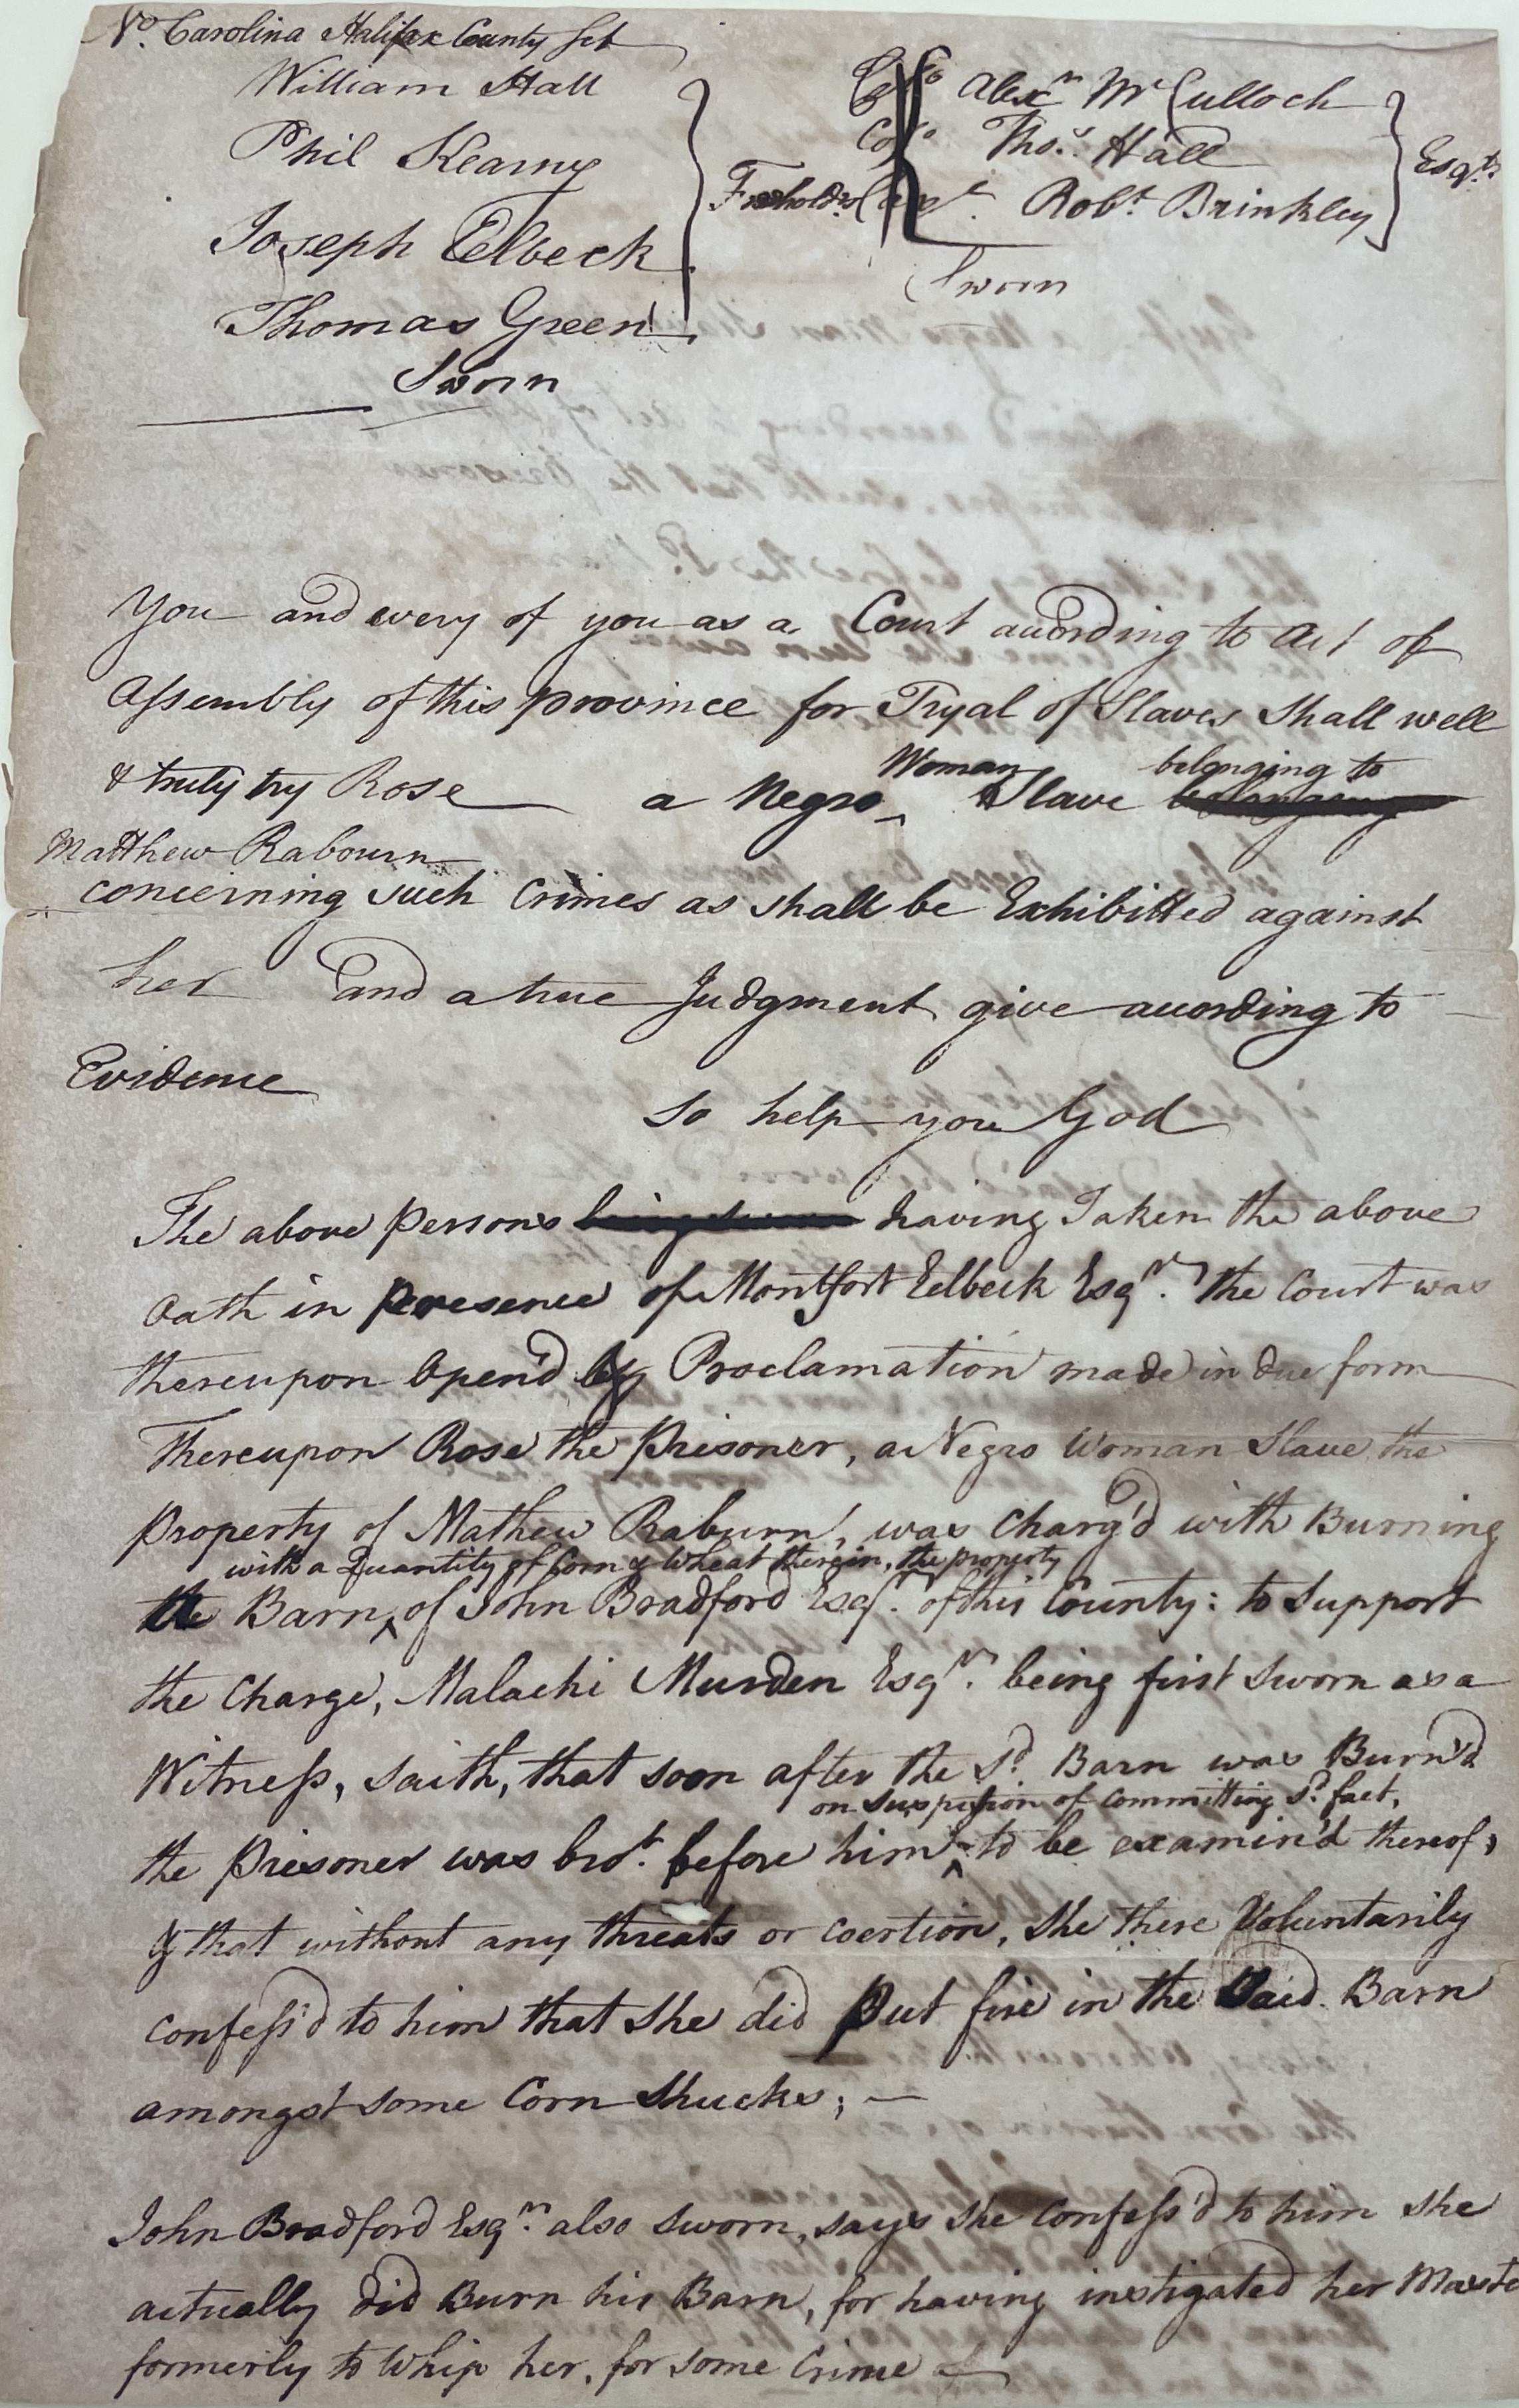 No. Carolina Halifax County Sct
William Hall
Phil Kearny
Joseph Eelbeck
Thomas Green
Sworn
Freehold.rs
Alex.r McCulloch
Tho.s Hall
Rob.t Brinkley
Esq.rs
Sworn
You and every of you as a Court according to Act of
Assembly of this province for Tryal of Slaves Shall well
& truly try Rose a Negro Woman Slave belonging to
Matthew Rabourn
concerning such Crimes as shall be Exhibitted against
her and a true Judgment give according to
Evidence
So help you God
The above Persons having Taken the above
Oath in Presence of Montfort Eelbeck Esq.r the Court was
thereupon Open'd by Proclamation made in due form
Thereupon Rose the Prisoner, a Negro Woman Slave the
Property of Mathew Raburn, was Charg'd with Burning
with a Quantity of Corn & Wheat therein, the property
the Barn ^ of John Bradford Esq.r of this County: to Support
the Charge, Malachi Murden Esq.r being first Sworn as a
Witness, Saith, that soon after the S.d Barn was Burn'd
on Suspision of Committing S.d fact,
the Prisoner was bro.t before him ^ to be examin'd thereof,
& that without any threats or Coertion, She there Voluntarily
Confess'd to him that She did Put fire in the Said Barn
amongst some Corn Shucks; —
John Bradford Esq.r also Sworn, says She Confess'd to him She
actually did Burn his Barn, for having instigated her Maste
formerly to Whip her, for some Crime